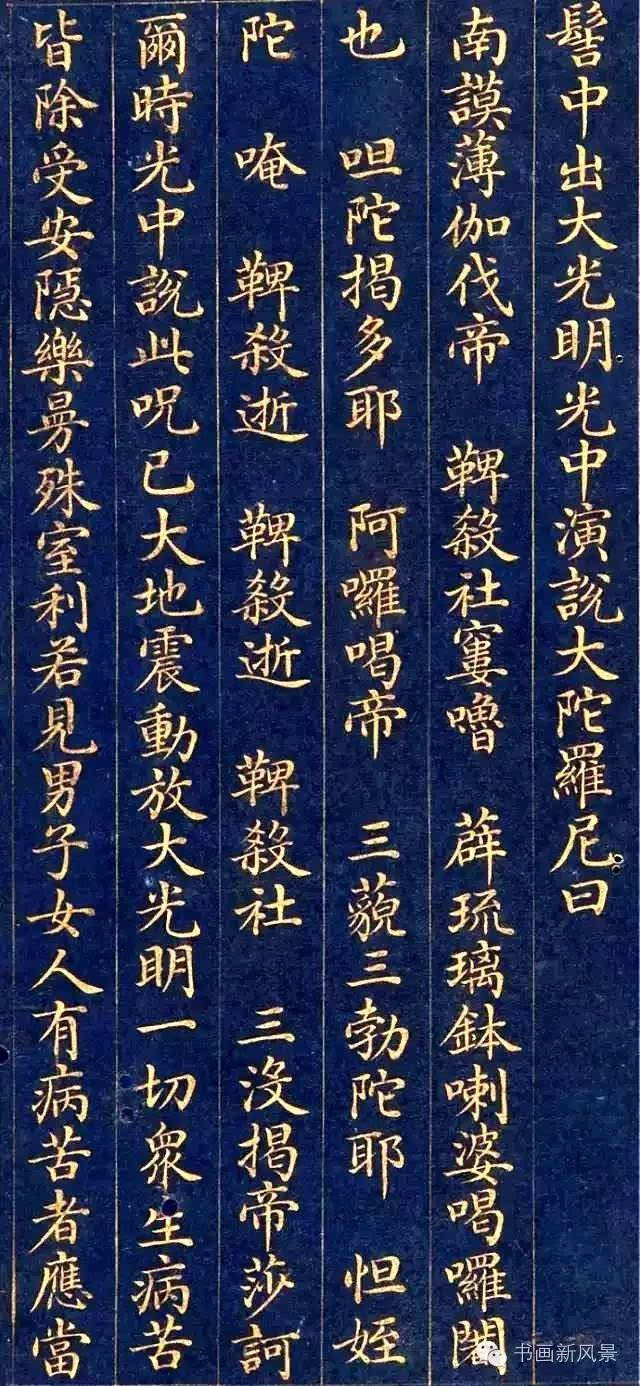 髻中出大光明光中演說大陀羅尼曰
南謨薄伽伐帝 鞞殺社窶嚕 薜琉璃鉢喇婆喝囉闍
也 呾陀揭多耶 阿囉喝帝 三藐三勃陀耶 怛姪
陀 唵 鞞殺逝 鞞殺逝 鞞殺社 三沒揭帝莎訶
爾時光中說此呪已大地震動放大光明一切眾生病苦
皆除受安隱樂曼殊室利若見男子女人有病苦者應當
书画新风景